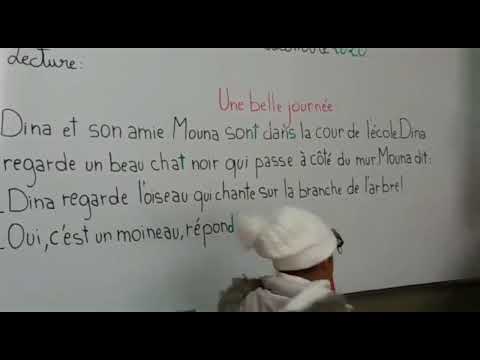 Lecture:
2020
Une belle journée
Dina et son amie Mouna sont dans la cour de l'école.Dina
regarde un beau chat noir qui passe à côté du mur.Mouna dit:
_Dina regarde l'oiseau qui chante sur la branche de l'arbre!
_Oui, c'est un moineau, répond